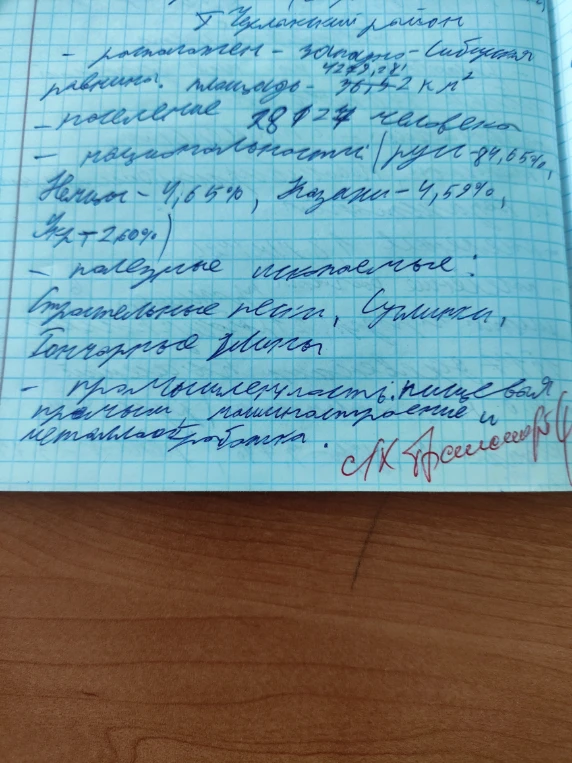 Т Черлакский район
- расположен - западно-Сибирская
равнина. площадь - км²
4279,281
- население человека
- национальности (русс - 84,65%,
Немцы - 4,65%, Казахи - 4,59%,
Укр - 2,60%)
- полезные ископаемые:
Строительные пески, Суглинки,
Гончарные глины
- промышленность: пищевая
промыш, машиностроение и
металлообработка.